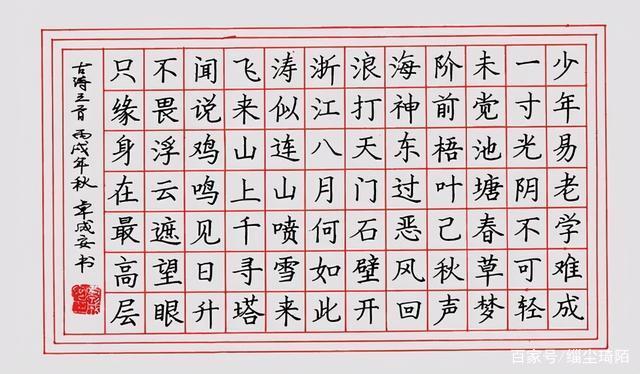 少年易老学难成
一寸光阴不可轻
未觉池塘春草梦
阶前梧叶已秋声
海神东过恶风回
浪打天门石壁开
浙江八月何如此
涛似连山喷雪来
飞来山上千寻塔
闻说鸡鸣见日升
不畏浮云遮望眼
只缘身在最高层
古诗三首 丙戌年秋 书
百家号/缁尘琦陌